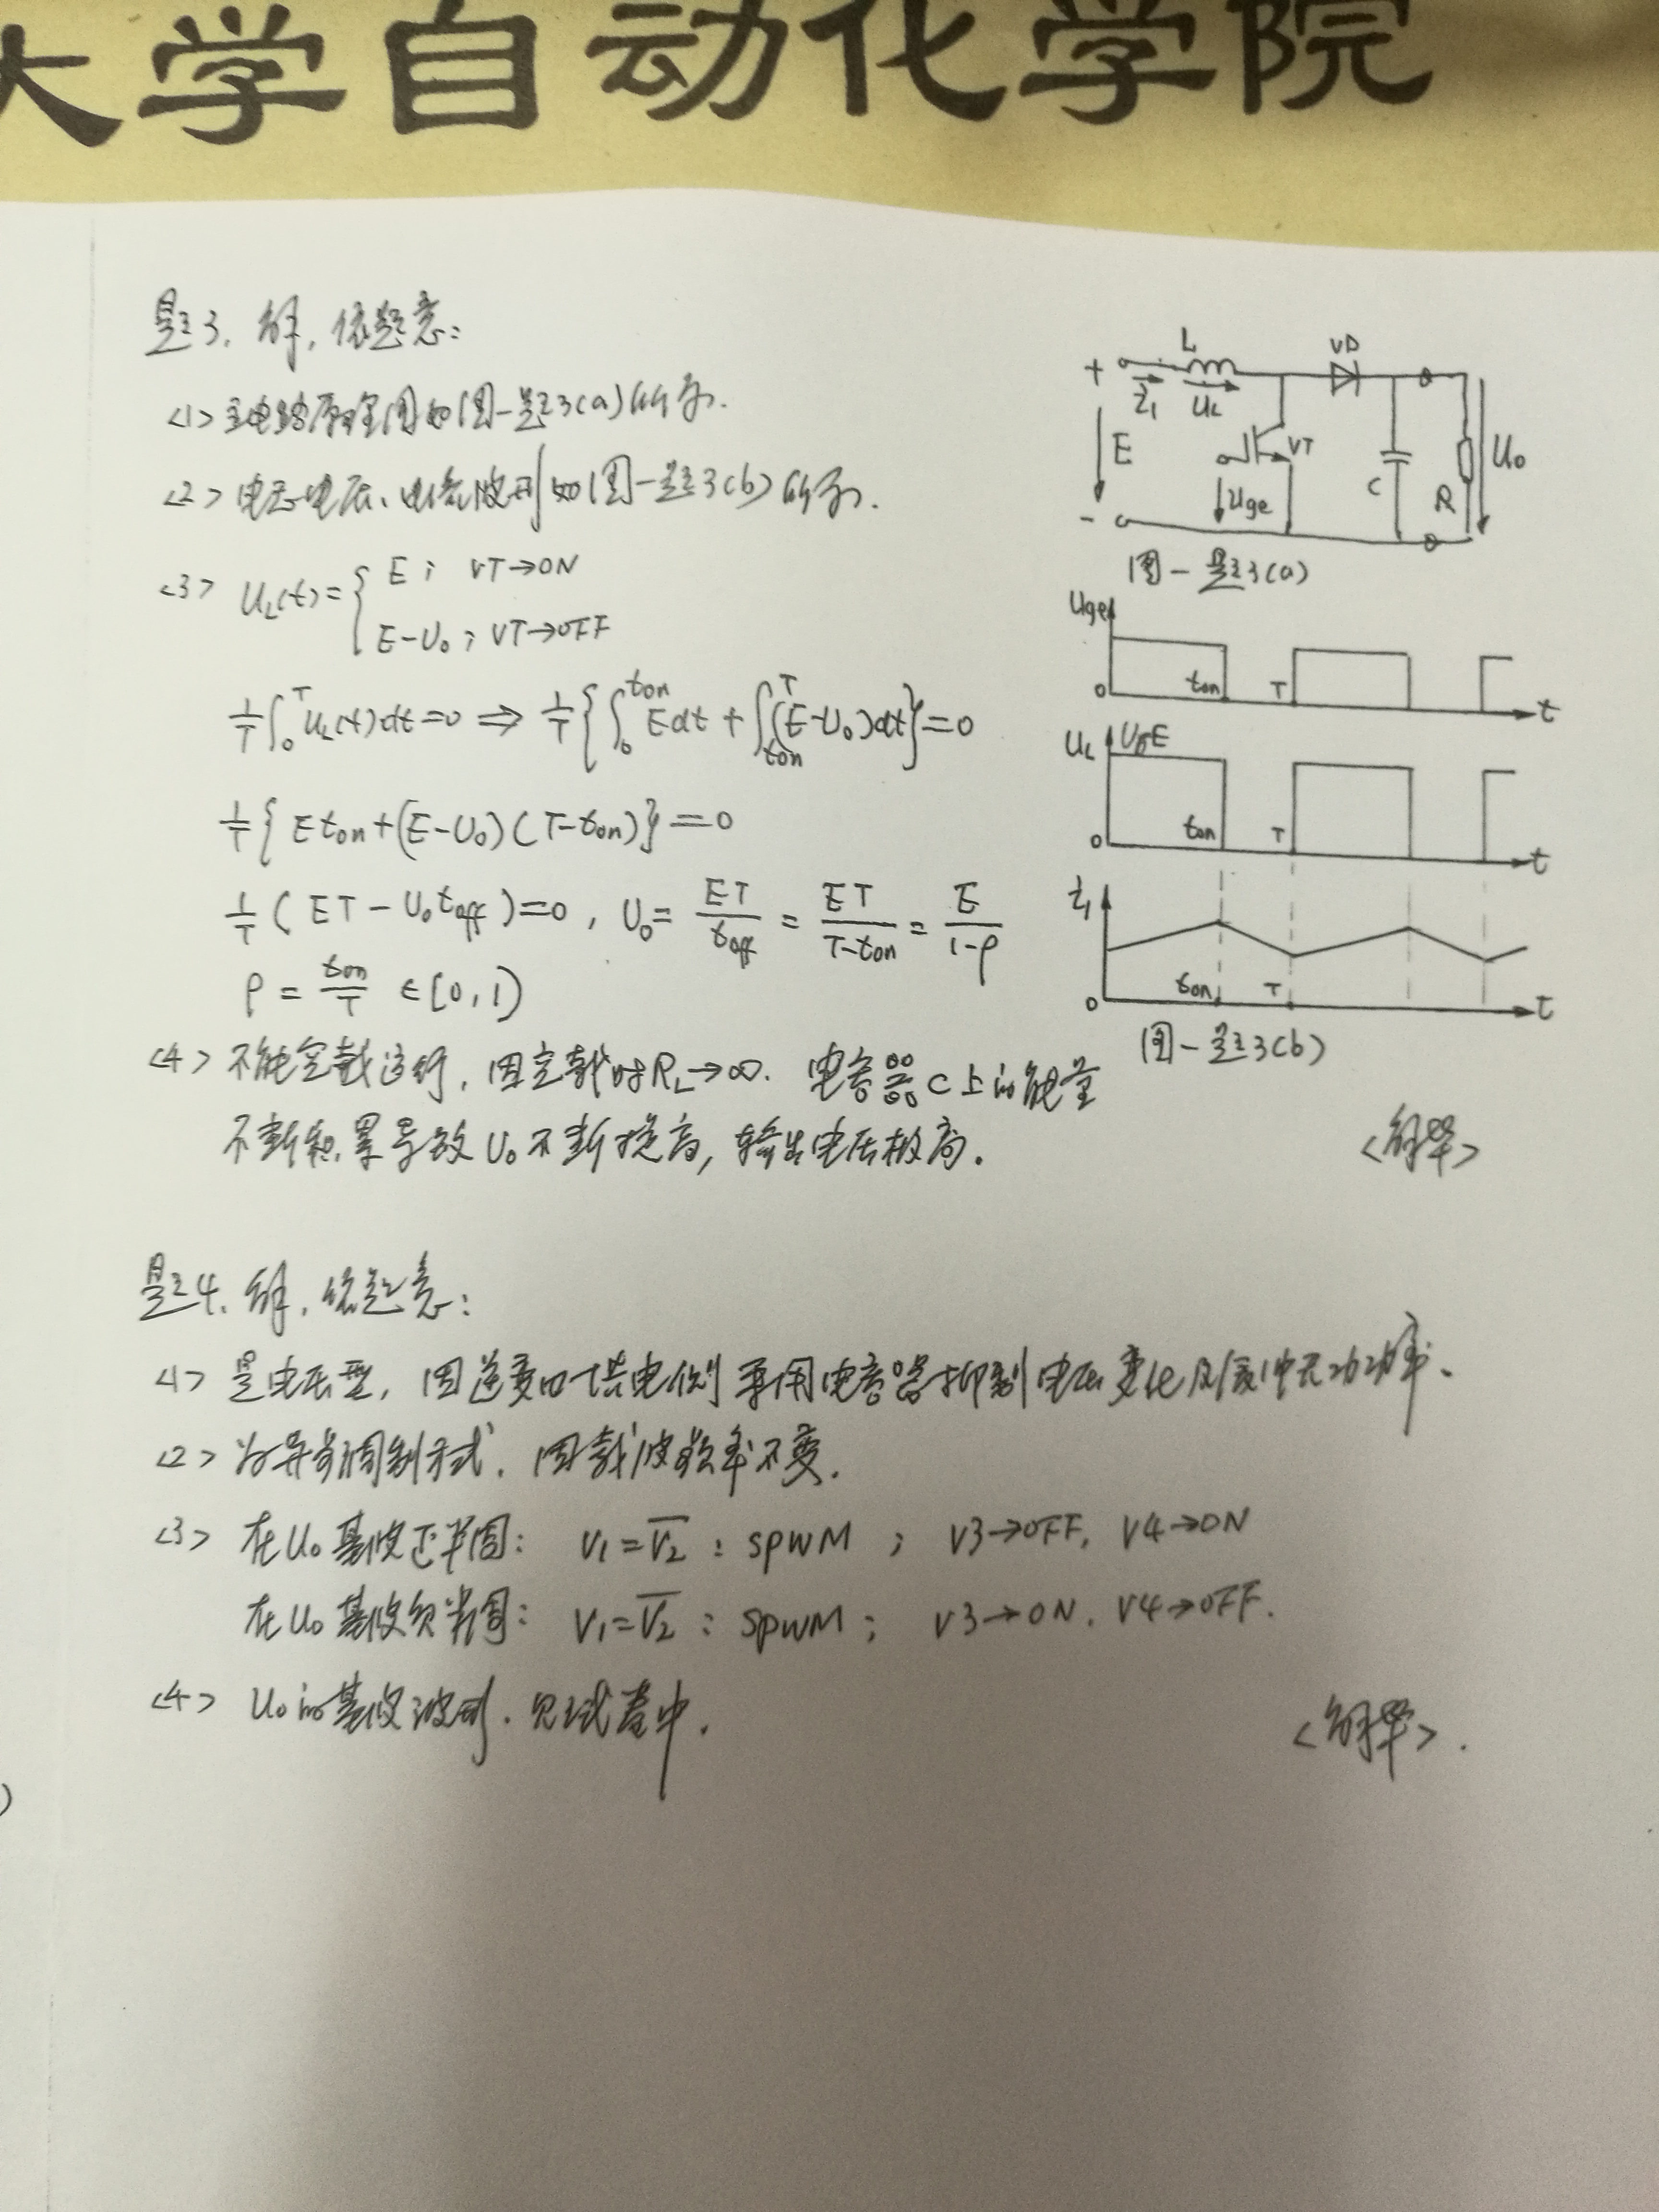 大学自动化学院
题3. 解. 依题意:
<1> 主电路原理图如图-题3(a)所示.
<2> 电感电压、电流波形如图-题3(b)所示.
<3> UL(t)={ E; VT→ON
E-U₀; VT→OFF
1/T ∫₀ᵀ UL(t)dt=0 ⇒ 1/T{∫₀^ton Edt + ∫ton^T (E-U₀)dt}=0
1/T{Eton+(E-U₀)(T-ton)}=0
1/T(ET-U₀toff)=0, U₀= ET/toff = ET/(T-ton) = E/(1-ρ)
ρ = ton/T ∈[0,1)
<4> 不能空载运行, 因空载时RL→∞. 电容器C上的能量
不断积累导致U₀不断提高, 输出电压极高.
<解毕>
L VD
+ i₁ UL
E VT C R U₀
Uge
-
图-题3(a)
Uge
0 ton T t
UL E
0 ton T t
i₁
0 ton T t
图-题3(b)
题4. 解. 依题意:
<1> 是电压型, 因逆变口供电侧采用电容器抑制电压变化及缓冲无功功率.
<2> 为异步调制方式, 因载波频率不变.
<3> 在U₀基波正半周: V1=V̅2̅ : SPWM ; V3→OFF, V4→ON
在U₀基波负半周: V1=V̅2̅ : SPWM ; V3→ON. V4→OFF.
<4> U₀的基波波形. 见试卷中.
<解毕>.
)